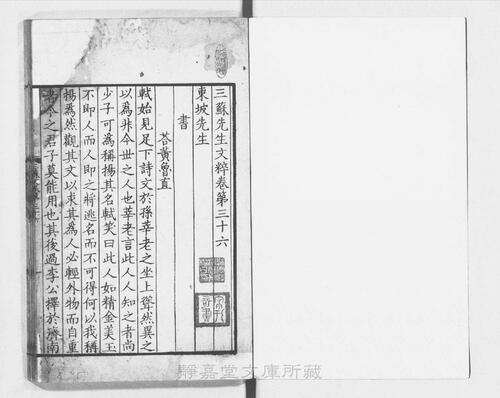 三蘇先生文粹卷第三十六
東坡先生
書
荅黃魯直
軾始見足下詩文於孫莘老之坐上聳然異之
以為非今世之人也莘老言此人人知之者尚
少子可為稱揚其名軾笑曰此人如精金美玉
不即人而人即之將逃名而不可得何以我稱
揚為然觀其文以求其為人必輕外物而自重
者今之君子莫能用也其後過李公擇於濟南
靜嘉堂文庫所藏